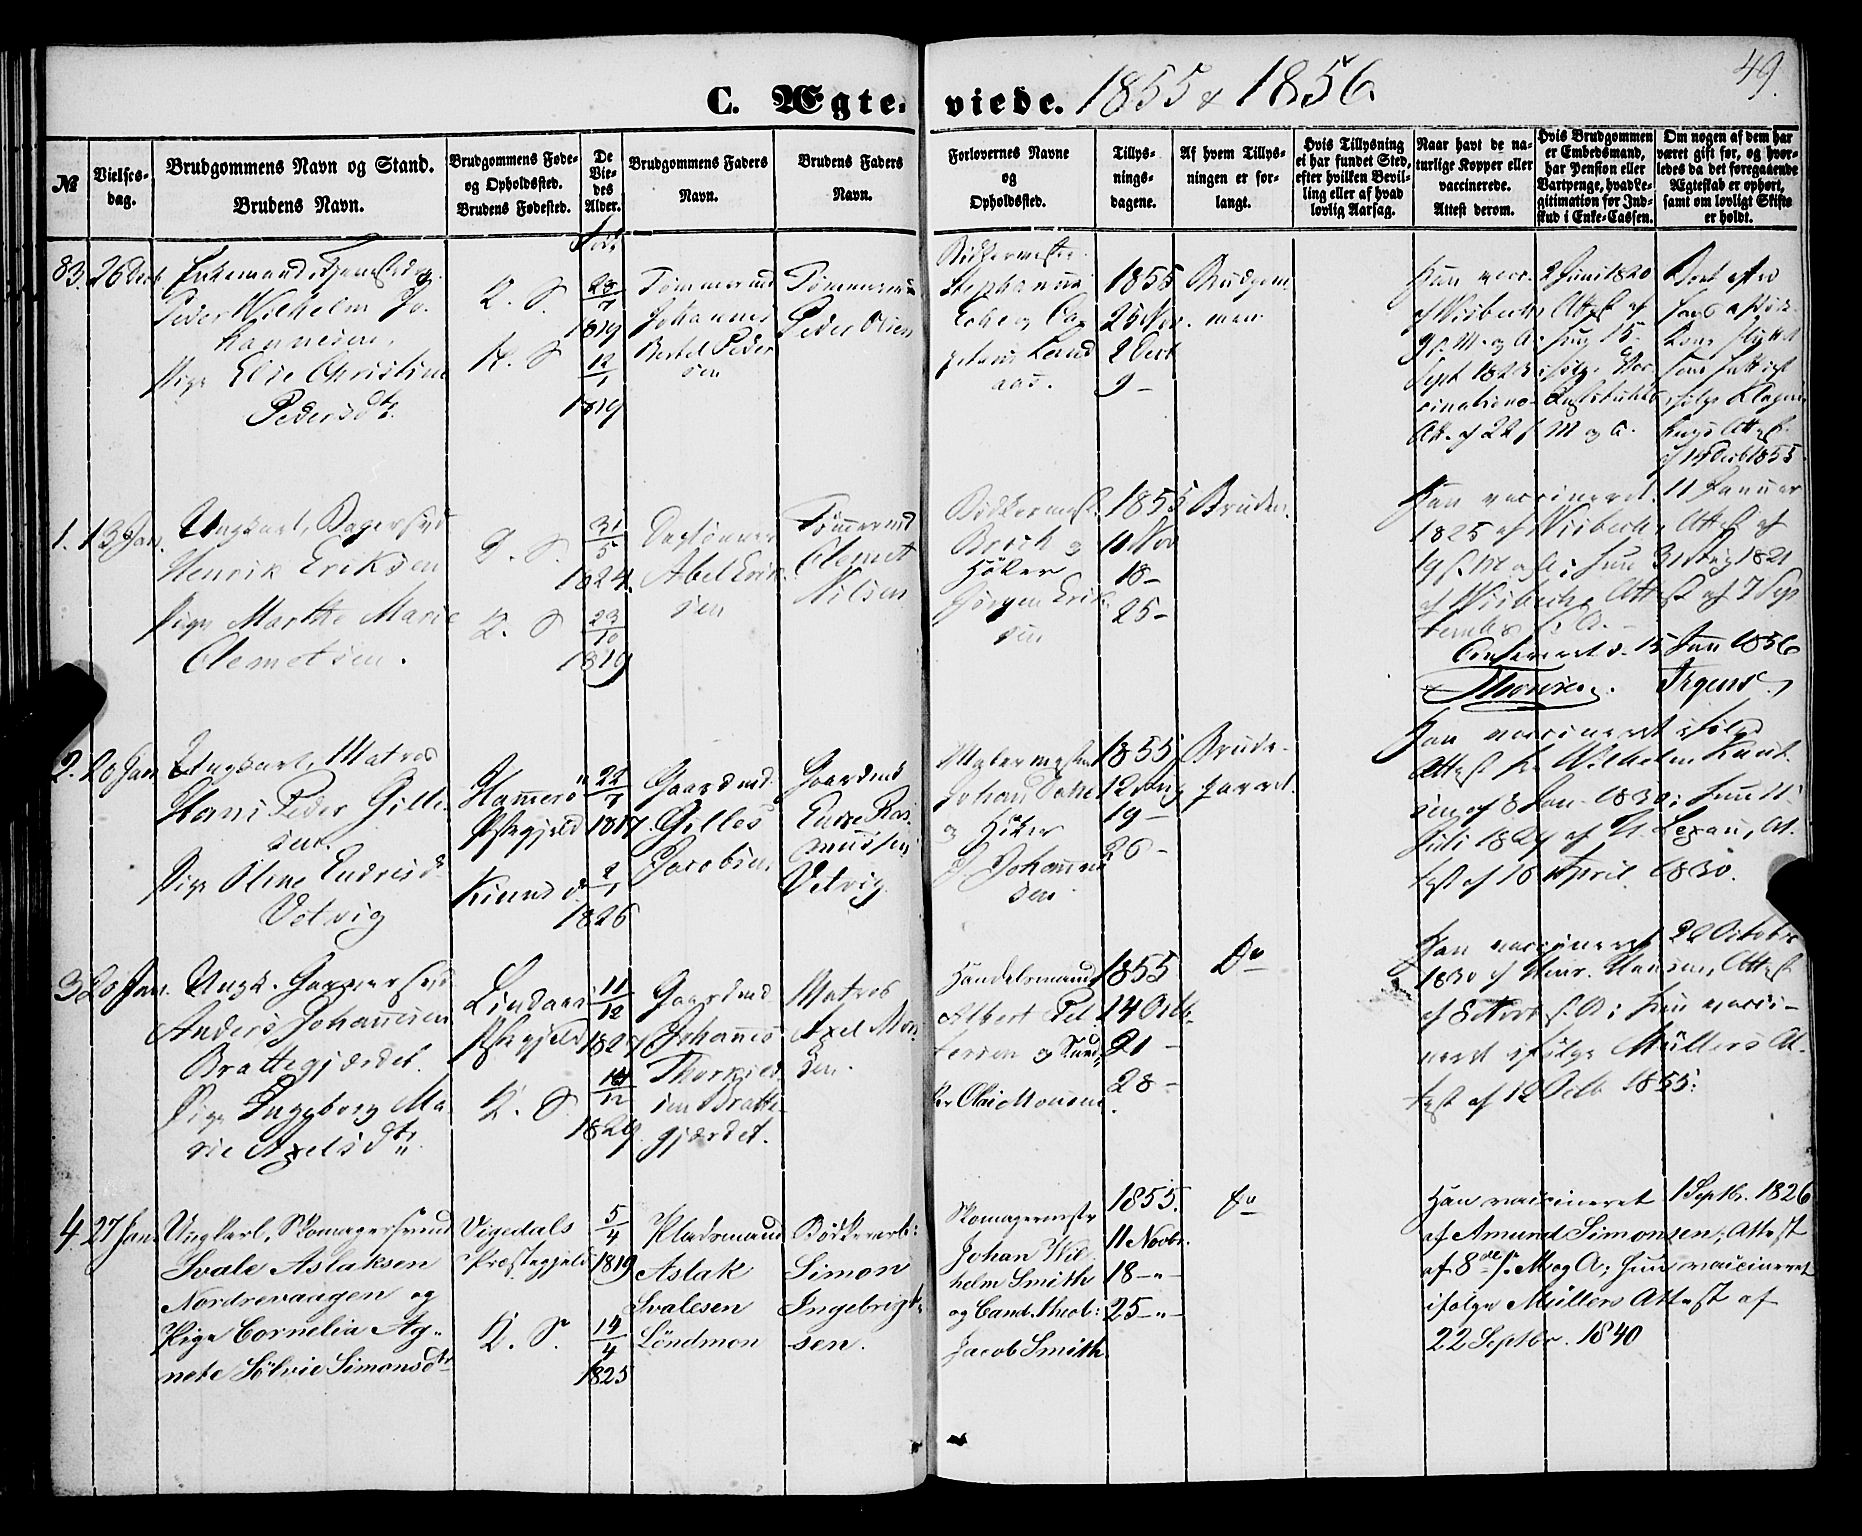 C. Ægte-viede. 1855 & 1856.
49.
№
Vielses-
dag.
Brudgommens Navn og Stand.
Brudens Navn.
Brudgommens Føde-
og Opholdssted.
Brudens Fødested.
De
Vie-
des
Alder.
Brudgommens Faders
Navn.
Brudens Faders
Navn.
Forlovernes Navne
og
Opholdssted.
Tillys-
nings-
dagene.
Af hvem Tillys-
ningen er for-
langt.
Hvis Tillysning
ei har fundet Sted,
efter hvilken Bevil-
ling eller af hvad
lovlig Aarsag.
Naar havt de na-
turlige Kopper eller
vaccinerede.
Attest derom.
Hvis Brudgommen
er Embedsmand,
har Pension eller
Vartpenge, hvad Le-
gitimation for Ind-
skud i Enke-Cassen.
Om nogen af dem har
været gift før, og hvor-
ledes da det foregaaende
Ægteskab er ophørt,
samt om lovligt Skifte
er holdt.
83. 26 Decb
Enkemand
Peder Wilhelm Jo-
hannesen,
Pige Else Christine
Pedersdtr.
K. S
K. S
1819
12/1
1819
Tømmermd
Johannes
Bertel Peder
sen
Tømmermd
Peder Olsen
Stephanus
1855
25 Nov.
2 Decb
9 –
Brudgom
men
Han vacc. 2 Juni 1820
af Wisbech, Attest af
9 s. M. og A; hun 15
Sept 1823 ifølge Vac-
cinations-
Att. af 22 s. M og A.
af 14 Decb 1855
1. 13 Jan.
Ungkarl, Bagersvd
Henrik Eriksen
Pige Marthe Marie
Clemetsen.
K. S
K. S
31/5
1824.
23/10
1819
Daglønner
Abel Erik
sen
Tømermd
Clemet
Nilsen
Bødkermest.
Brock og
Høker
Jørgen Erik
sen
1855
11 Nov
18 –
25 –
Bruden.
Han vaccineret 11 Januar
1825 af Wisbech, Attest af
19 s. M og A; hun 31 Aug 1821
af Wisbech, Attest af 7 Sep
tember s. A.
Confereret d. 15 Jan 1856
Irgens
2. 20 Jan
Ungkarl, Matros
Hans Peder Gille
sen.
Pige Oline Endresd
Vetvig
Hammers
Pstgjeld
Kinns d.
22/7
1817
2/1
1826
Gaardmd
Gilles
Jacobsen
Gaardmd
Endre Ras
mussen
Vetvig
Malermester
Johan
og Høker
Johannes
sen
1855
12 Aug
19 –
26 –
Brude-
parret.
Han vaccineret ifølge
Attest fra Wilhelm
sen af 8 Jan. 1830; hun 11
Juli 1829 af At-
test af 18 April 1830.
3. 20 Jan.
Ungk. Garversvd
Anders Johannesen
Brattegjærdet.
Pige Ingeborg Ma-
rie Axelsdtr
Lindaas
Pstgjeld
K. S.
11/12
1827
1829
Gaardmd
Johannes
Thorkild
sen Bratte-
gjærdet.
Matros
Axel Mon
sen.
Handelsmand
Albert Pet
tersen og
Olai Monsen.
1855
14 Octb.
21 –
28 –
Do
Han vaccineret 22 Octobr
1830 af Attest
af s. A; hun vacci-
neret ifølge Müllers At-
test af 12 Octb 1855.
4. 27 Jan.
Ungkarl, Skomagersvend
Svale Aslaksen
Nordrevaagen og
Pige Cornelia Ag-
nete Sølvie Simonsdtr
Vigedals
Præstegjeld
K. S.
5/4
1819
14/4
1825
Pladsmand
Aslak
Svalesen
Løndmon
Bødkerarb:
Simon
Ingebrigt-
sen.
Skomagermestr
Johan Wil-
helm Smith
og Cand. theol:
Jacob Smith
1855.
11 Novbr.
18 – " –
25 – " –
Do
Han vaccineret 1 Septbr. 1826
af Amund Simonsen, Attest
af 8de s. M og A; hun vaccineret
ifølge Müllers Attest af
22 Septbr. 1840